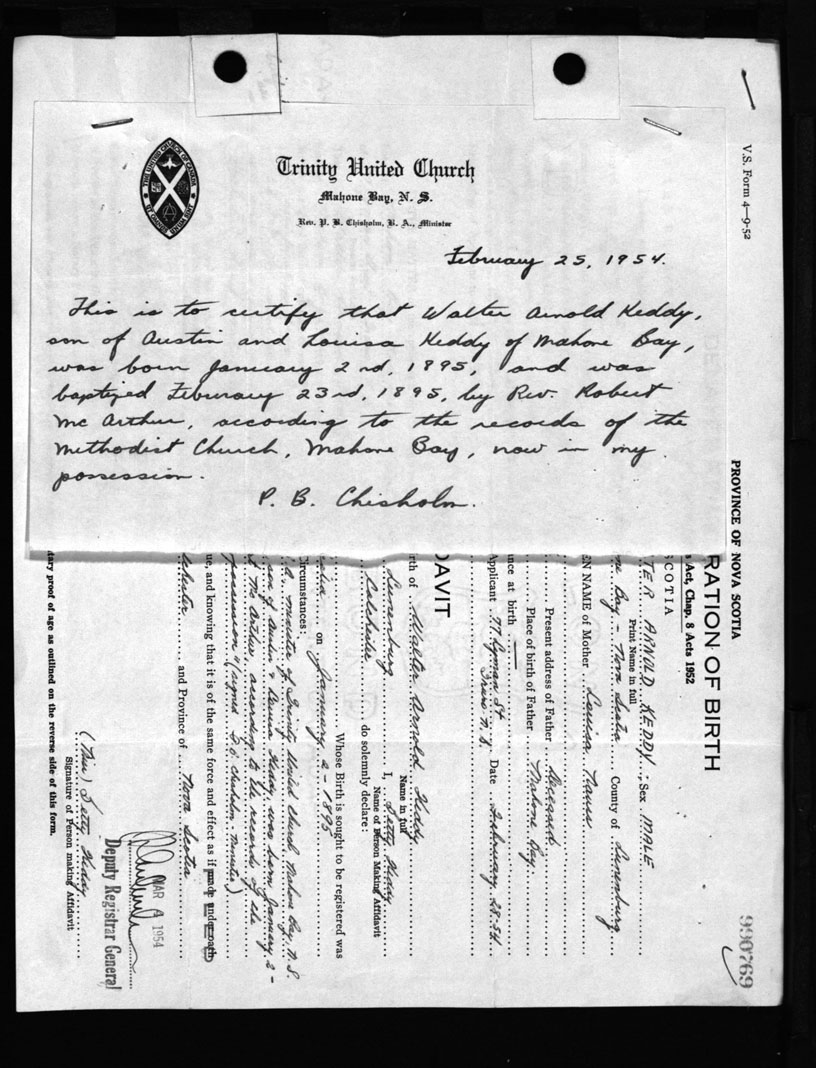 Trinity United Church
Mahone Bay, N. S.
Rev. P. B. Chisholm, B. A., Minister
February 25, 1954.
This is to certify that Walter Arnold Keddy,
son of Austin and Louisa Keddy of Mahone Bay,
was born January 2nd, 1895, and was
baptized February 23rd, 1895, by Rev. Robert
McArthur, according to the records of the
Methodist Church, Mahone Bay, now in my
possession.
P. B. Chisholm.
V.S. Form 4—9-52
PROVINCE OF NOVA SCOTIA
RATION OF BIRTH
s Act, Chap. 8 Acts 1952
SCOTIA
TER ARNOLD KEDDY; Sex MALE
Print Name in full
ne Bay - Nova Scotia County of Lunenburg
EN NAME of Mother Louisa
Present address of Father Deceased
Place of birth of Father Mahone Bay.
ance at birth
Applicant 77 Lyman St Date February 28-54
Truro N.S.
DAVIT
rth of Walter Arnold Keddy
Name in full
Lunenburg I, Betty Keddy
Name of Person Making Affidavit
Colchester do solemnly declare:
Whose Birth is sought to be registered was
on January 2-1895
Circumstances:
minister of Trinity United Church Mahone Bay, N.S.
son of Austin & Louisa Keddy was born January 2-
McArthur according to the records of the
possession (signed P.B. Chisholm, Minister)
ue, and knowing that it is of the same force and effect as if made under oath
and Province of Nova Scotia
(Mrs) Betty Keddy
Signature of Person making Affidavit
tary proof of age as outlined on the reverse side of this form.
MAR 1954
Deputy Registrar General
990769